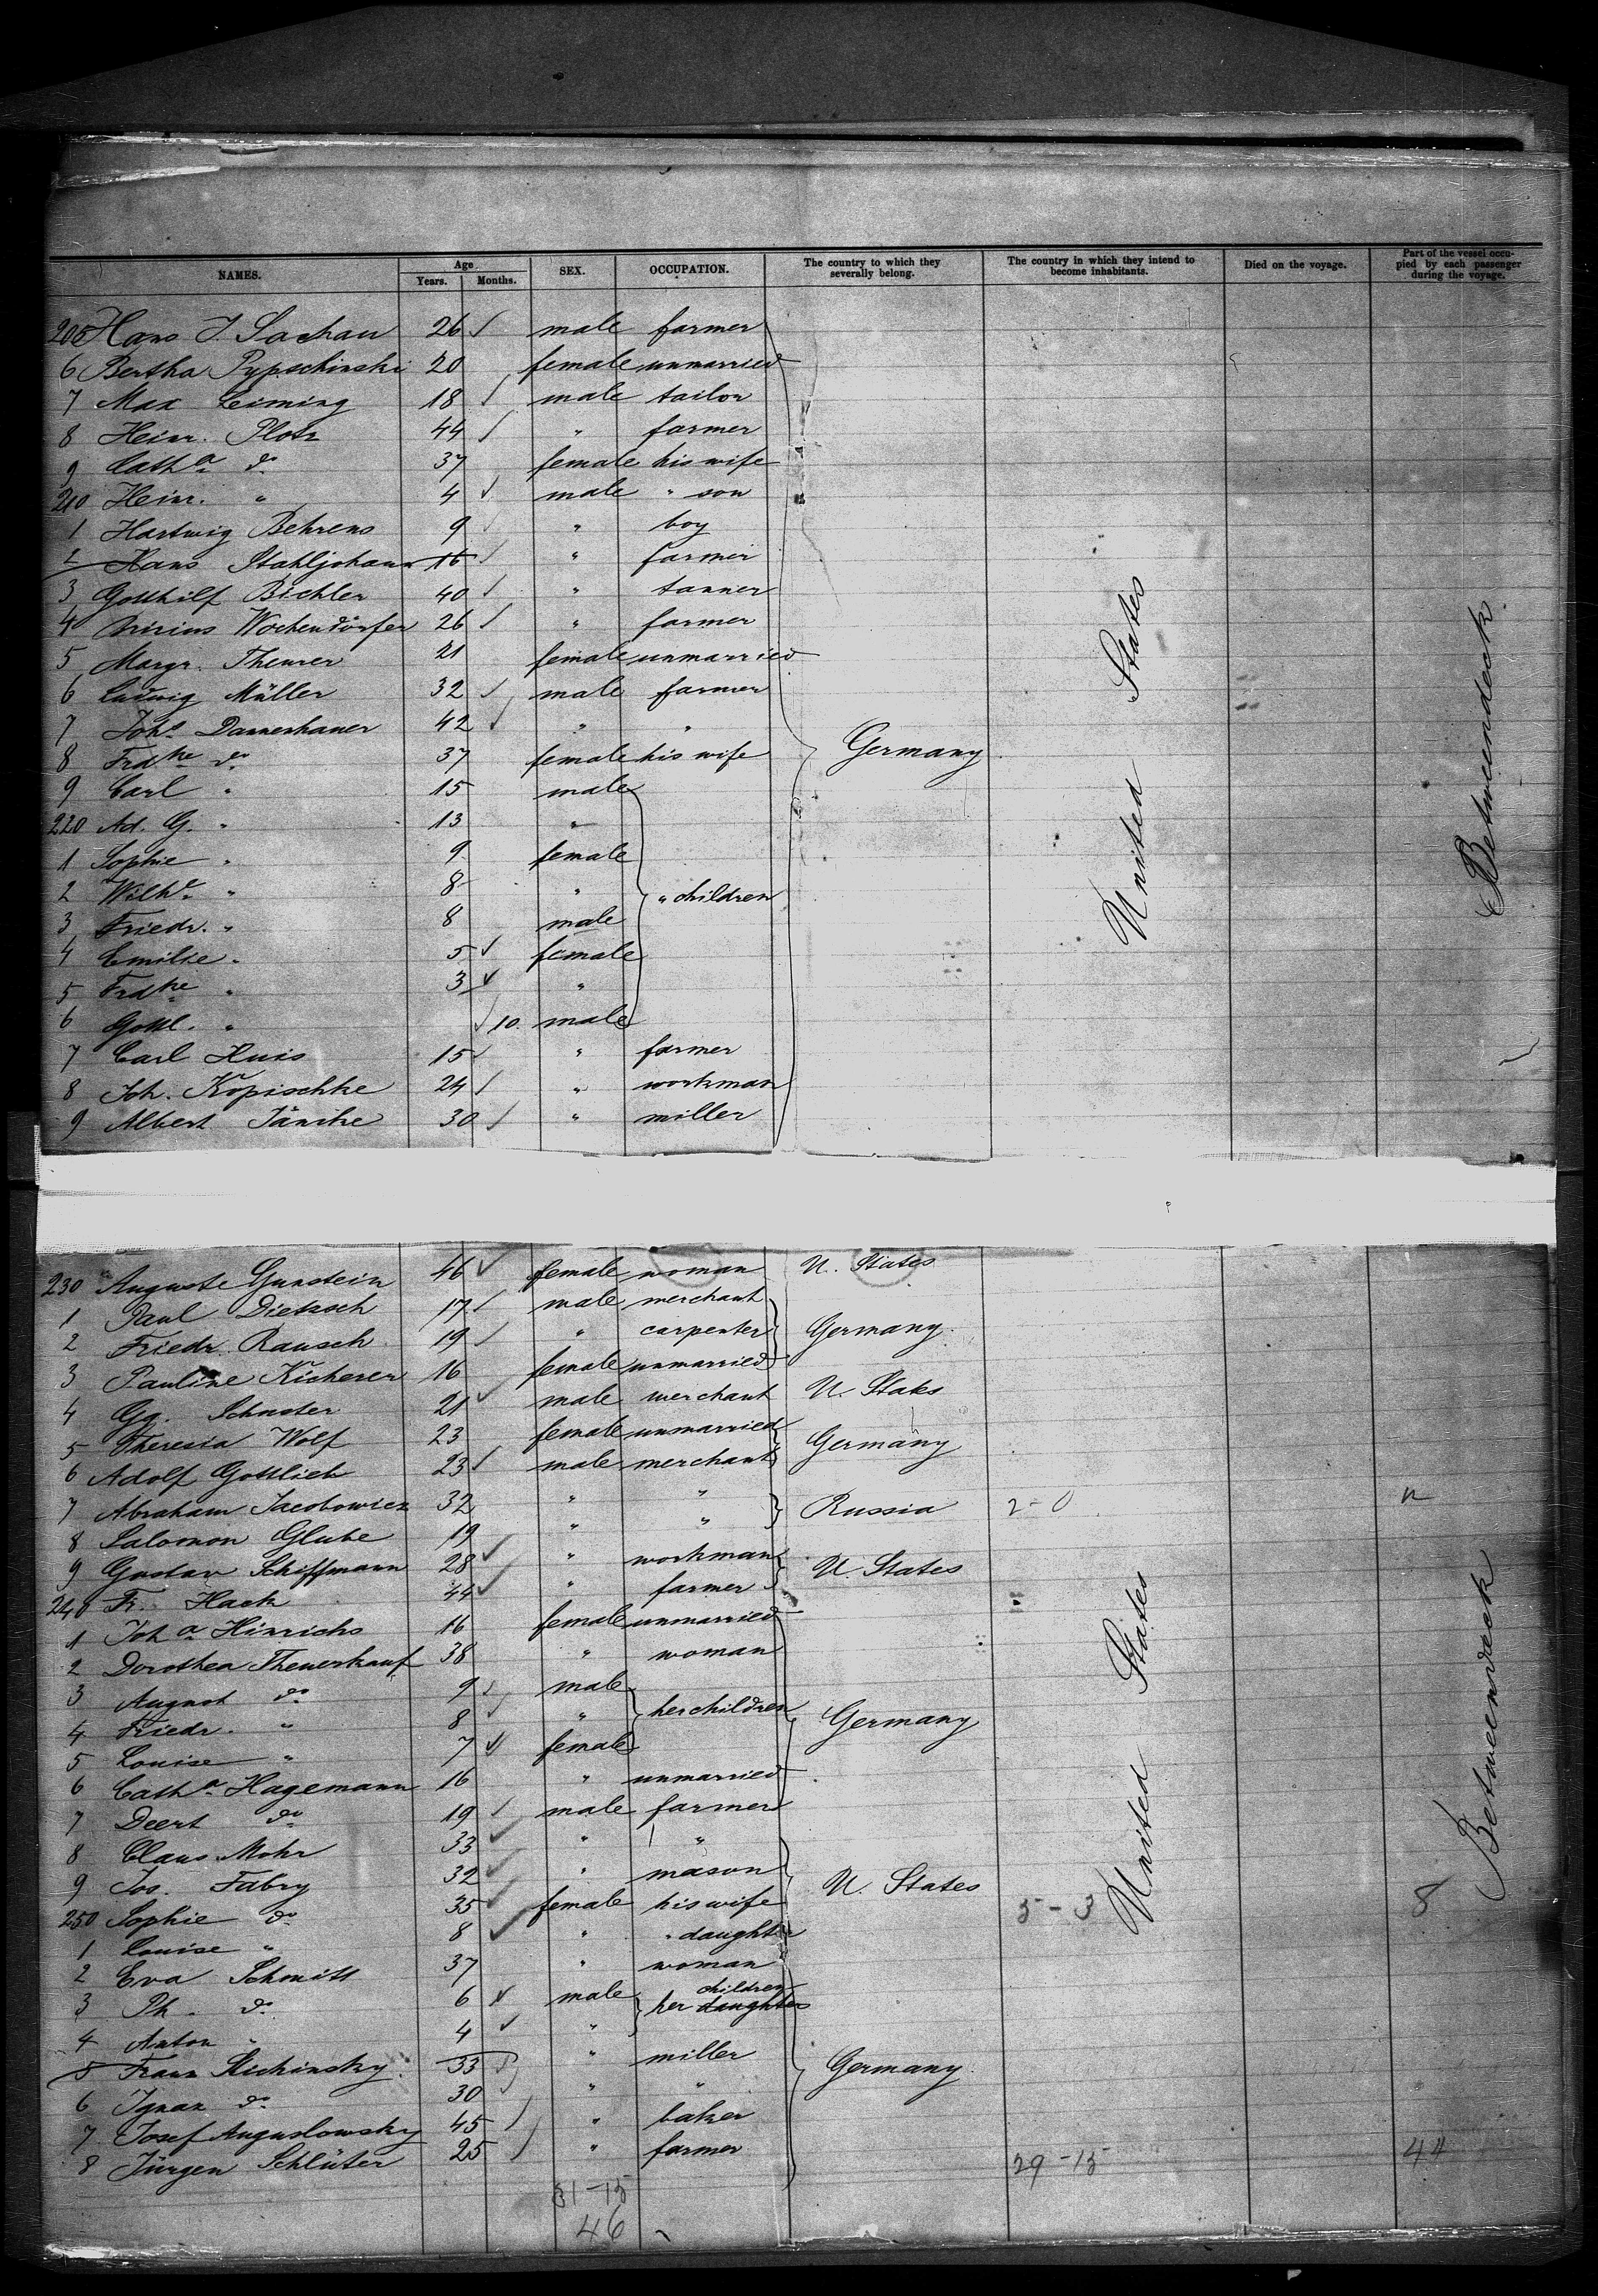 NAMES. Age SEX. OCCUPATION. The country to which they severally belong. The country in which they intend to become inhabitants. Died on the voyage. Part of the vessel occupied by each passenger during the voyage.
Years. Months.
205 Hans J. Sachau 26 ✓ male farmer
6 Bertha Pypschinski 20 female unmarried
7 Max Leiming 18 ✓ male tailor
8 Heinr. Plotz 44 ✓ " farmer
9 Catha do 37 female his wife
210 Heinr. " 4 ✓ male " son
1 Hartwig Behrens 9 ✓ " boy
2 Hans Stahljohann 16 ✓ " farmer
3 Gotthilf Bichler 40 ✓ " tanner
4 Wochendörfer 26 ✓ " farmer
5 Margr. Theurer 21 female unmarried
6 Ludwig Müller 32 ✓ male farmer
7 Johs Dannenhauer 42 ✓ " "
8 Frdke do 37 female his wife Germany
9 Carl " 15 male
220 Ad. G. " 13 "
1 Sophie " 9 female
2 Wilhe " 8 " " children
3 Friedr. " 8 male
4 Emilie " 5 ✓ female
5 Frdke " 3 ✓ "
6 Gottl. " ✓ 10 male
7 Carl Huis 15 ✓ " farmer
8 Joh. Kopischke 24 ✓ " workman
9 Albert Jäncke 30 ✓ " miller
United States
Betweendeck
230 Auguste Gunstein 46 ✓ female woman U. States
1 Paul Dietzsch 17 ✓ male merchant
2 Friedr. Rausch 19 ✓ " carpenter Germany.
3 Pauline Kicherer 16 female unmarried
4 Gg. Schuster 21 ✓ male merchant U. States
5 Theresia Wolf 23 female unmarried Germany
6 Adolf Gottlieb 23 ✓ male merchant
7 Abraham Jacobowicz 32 " " Russia 2-0
8 Salomon Glube 19 " "
9 Gustav Schiffmann 28 ✓ " workman U. States
240 Fr. Hack 44 ✓ " farmer
1 Joha Hinrichs 16 female unmarried
2 Dorothea Theuerkauf 38 " woman
3 August do 9 ✓ male
4 Friedr. " 8 ✓ " her children Germany
5 Louise " 7 ✓ female
6 Catha Hagemann 16 " unmarried
7 Deert do 19 ✓ male farmer
8 Claus Mohr 33 ✓ " "
9 Jos. Fabry 32 ✓ " mason U. States
250 Sophie do 35 ✓ female his wife 5-3 8
1 Louise " 8 ✓ " " daughter
2 Eva Schmitt 37 " woman
3 Ph. do 6 ✓ male her daughters children
4 Anton " 4 ✓ "
5 Franz Stichinsky. 33 " miller Germany.
6 Ignaz do 30 ✓ " "
7 Josef Anguslowsky 45 ✓ " baker
8 Jürgen Schlüter 25 ✓ " farmer 29-15 44
United States
Betweendeck
31-15
46